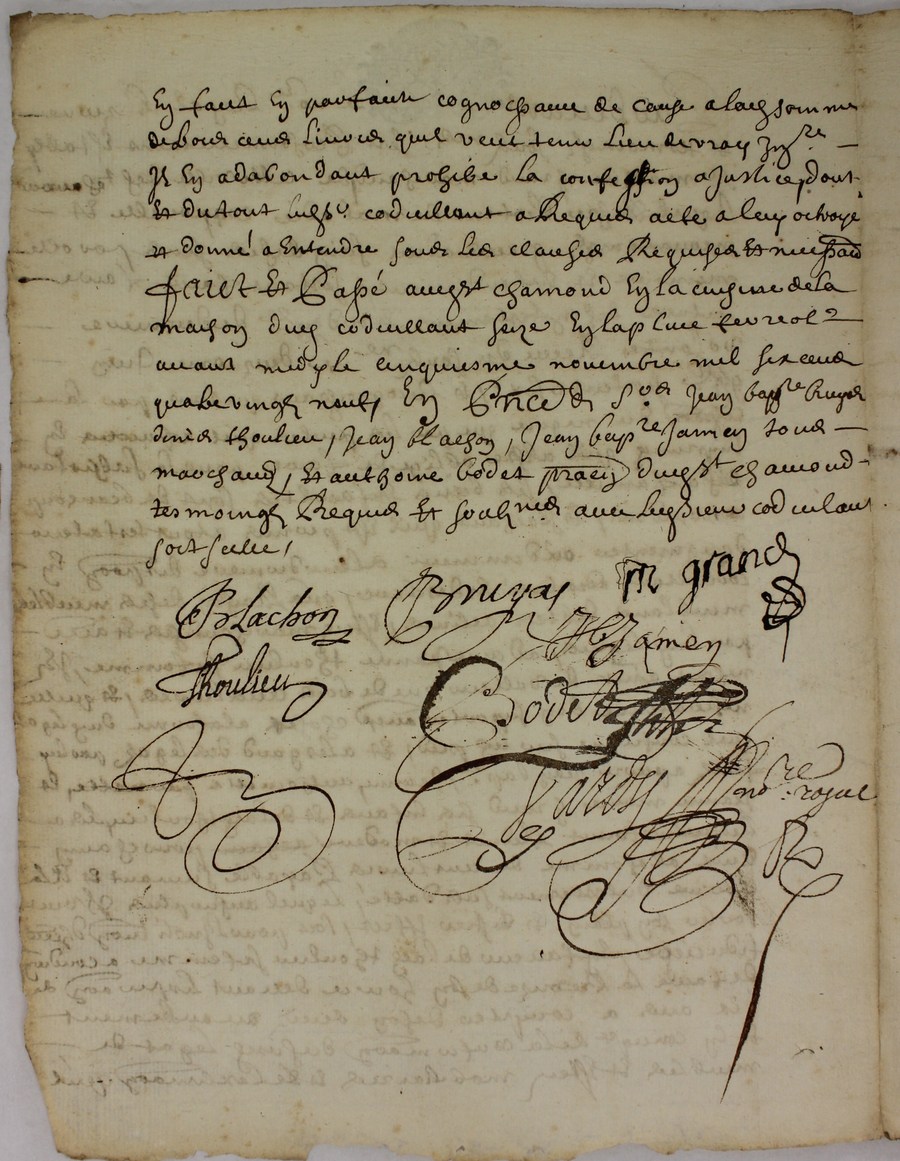 En faict En parfaicte cognoissance de cause a lad somme
de trois cens livres quil veut tenir lieu de vray Inre
Il En adabondant prohibé la confession a Justice, dont
Et du tout led sr codicillant a Requis acte a luy octroyé
et donné a Entendre soubs les clauses Requises et necessaires
Faict Et Passé aud st chamond En la cuisine de la
maison dud codicillant size En la place
avant midy le cinquiesme novembre mil six cens
quatre vingtz neuf, En Pnce de Srs Jean bapte bruyas
denis thoulieu, Jean blachon, Jean bapte Jamen tous
marchands, Et anthoine bodet pracn dud st chamond
tesmoings Requis Et soubznés avec led sieur codicilant
soit scelé,
Blachon Bruyas m grand
Thoulieu JB Jamen
Bodet
Vardy nore royal